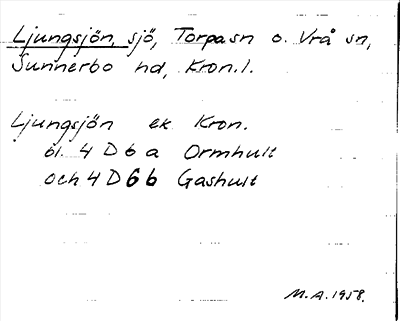 Ljungsjön, sjö, Torpa sn o. Vrå sn,
Sunnerbo hd, Kron. l.
Ljungsjön ek Kron.
bl. 4 D 6 a Ormhult
och 4 D 6 b Gashult
M. A. 1958.